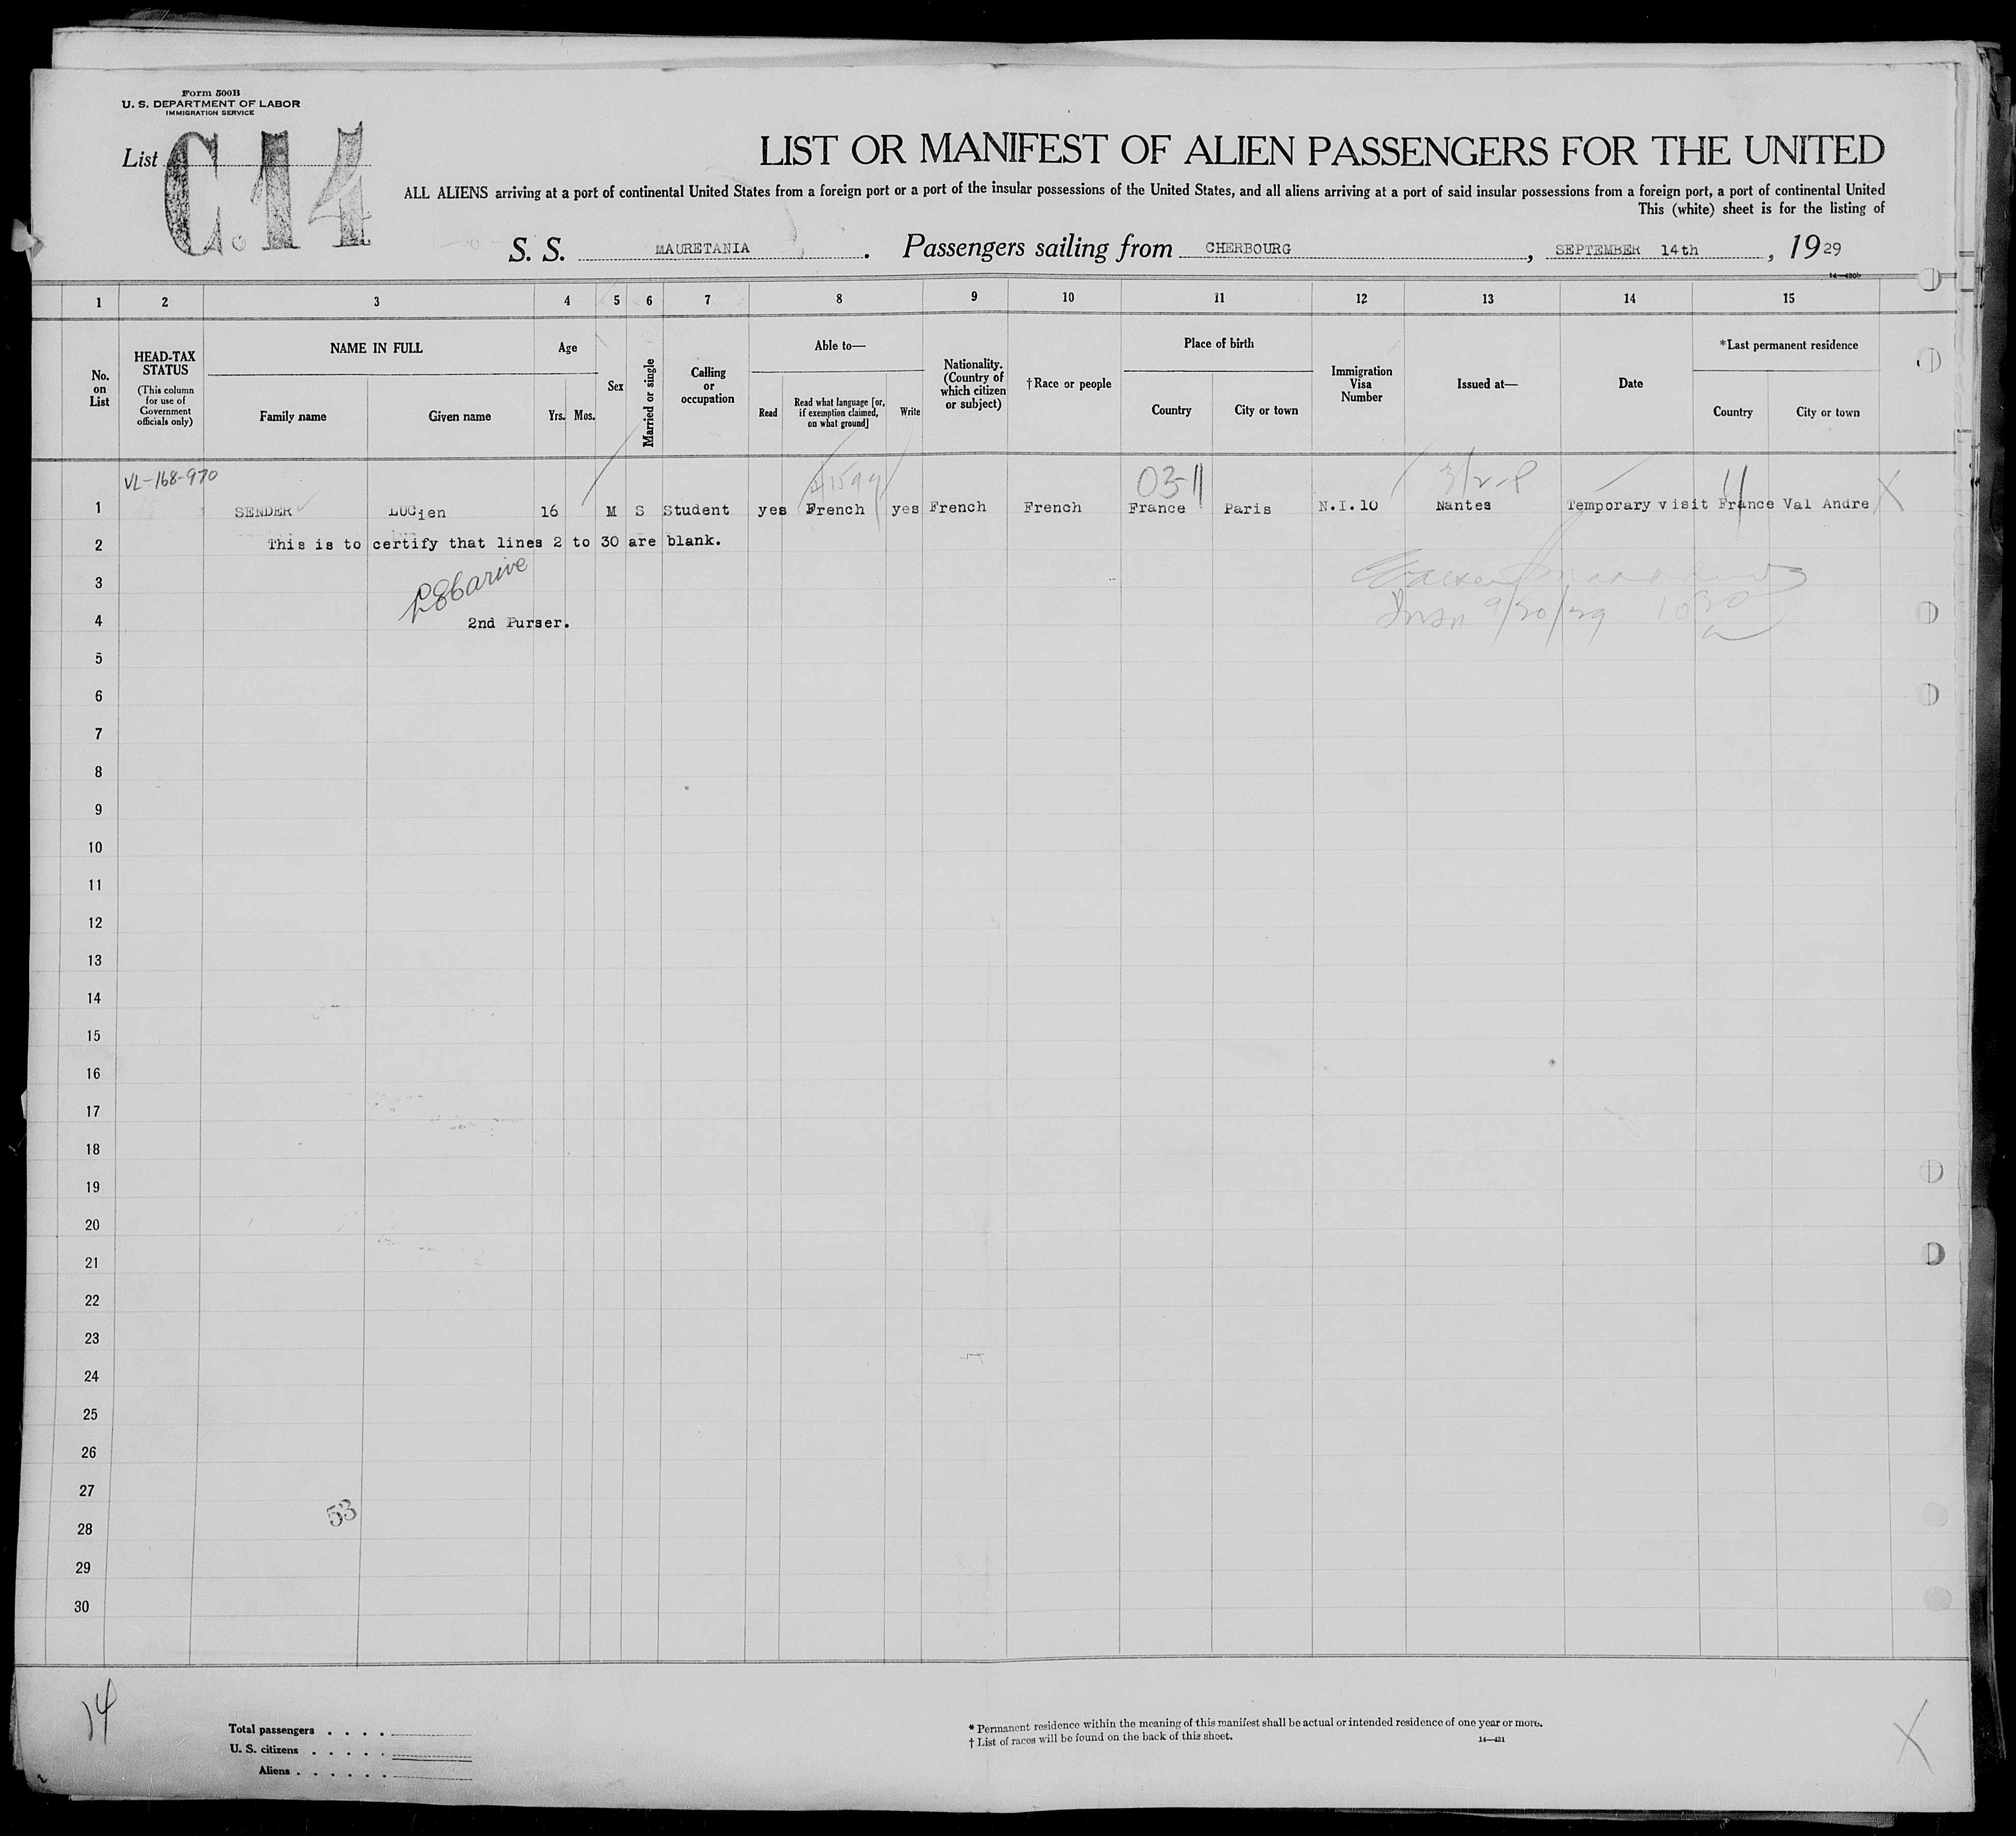 Form 500B
U. S. DEPARTMENT OF LABOR
IMMIGRATION SERVICE
List C.14
LIST OR MANIFEST OF ALIEN PASSENGERS FOR THE UNITED
ALL ALIENS arriving at a port of continental United States from a foreign port or a port of the insular possessions of the United States, and all aliens arriving at a port of said insular possessions from a foreign port, a port of continental United
This (white) sheet is for the listing of
S. S. MAURETANIA . Passengers sailing from CHERBOURG , SEPTEMBER 14th , 1929
14—430b
1 2 3 4 5 6 7 8 9 10 11 12 13 14 15
No. on List
HEAD-TAX STATUS
(This column for use of Government officials only)
NAME IN FULL
Family name
Given name
Age
Yrs. Mos.
Sex
Married or single
Calling or occupation
Able to—
Read
Read what language [or, if exemption claimed, on what ground]
Write
Nationality. (Country of which citizen or subject)
†Race or people
Place of birth
Country
City or town
Immigration Visa Number
Issued at—
Date
*Last permanent residence
Country
City or town
VL-168-970
03-11
11
1 SENDER LUCien 16 M S Student yes French yes French French France Paris N.I.10 Nantes Temporary visit France Val Andre X
2 This is to certify that lines 2 to 30 are blank.
3
4 2nd Purser. 9/20/29
5
6
7
8
9
10
11
12
13
14
15
16
17
18
19
20
21
22
23
24
25
26
27
53
28
29
30
14
Total passengers . . . .
U. S. citizens . . . . .
Aliens . . . . . .
* Permanent residence within the meaning of this manifest shall be actual or intended residence of one year or more.
† List of races will be found on the back of this sheet.
14—431
X